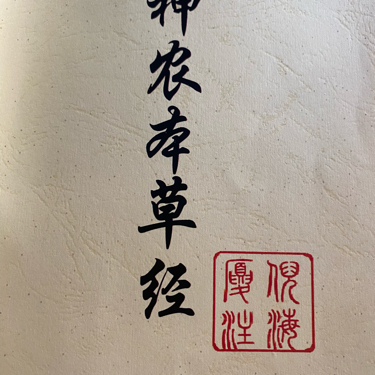 神农本草经
倪海
厦注